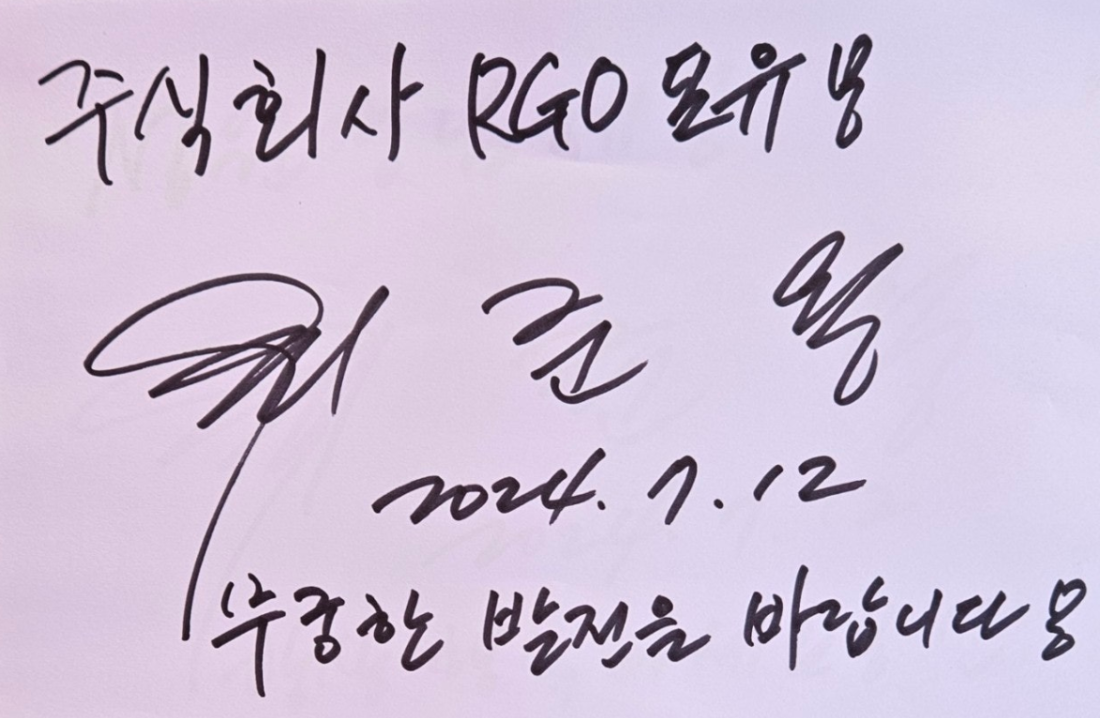 주식회사 RGO
준용
2024. 7. 12
무궁한 발전을 바랍니다